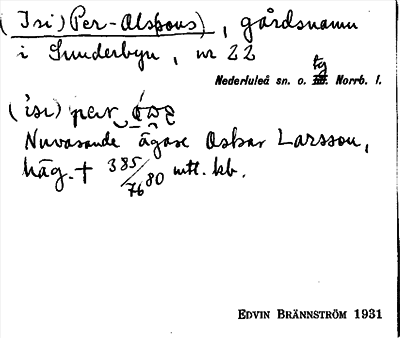 (Isi) Per-Alspons), gårdsnamn
i Sunderbyn, nr 22
tg
Nederluleå sn. o. Norrb. l.
(isi) per
Nuvarande ägare Oskar Larsson,
häg. + 385/7680 mtl. kb.
EDVIN BRÄNNSTRÖM 1931